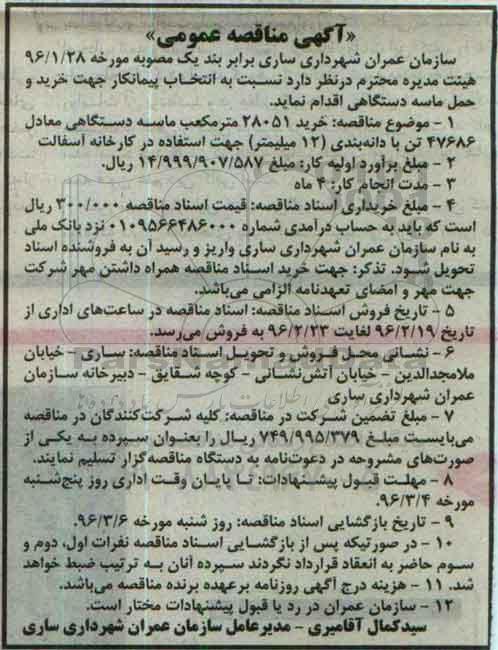 «آگهی مناقصه عمومی»
سازمان عمران شهرداری ساری برابر بند یک مصوبه مورخه ۹۶/۱/۲۸
هیئت مدیره محترم درنظر دارد نسبت به انتخاب پیمانکار جهت خرید و
حمل ماسه دستگاهی اقدام نماید.
۱ – موضوع مناقصه: خرید ۲۸۰۵۱ مترمکعب ماسه دستگاهی معادل
۴۷۶۸۶ تن با دانه‌بندی (۱۲ میلیمتر) جهت استفاده در کارخانه آسفالت
۲ – مبلغ برآورد اولیه کار: مبلغ ۱۴/۹۹۹/۹۰۷/۵۸۷ ریال.
۳ – مدت انجام کار: ۴ ماه
۴ – مبلغ خریداری اسناد مناقصه: قیمت اسناد مناقصه ۳۰۰/۰۰۰ ریال
است که باید به حساب درآمدی شماره ۰۱۰۹۵۶۶۴۸۶۰۰۰ نزد بانک ملی
به نام سازمان عمران شهرداری ساری واریز و رسید آن به فروشنده اسناد
تحویل شود. تذکر: جهت خرید اسناد مناقصه همراه داشتن مهر شرکت
جهت مهر و امضای تعهدنامه الزامی می‌باشد.
۵ – تاریخ فروش اسناد مناقصه: اسناد مناقصه در ساعت‌های اداری از
تاریخ ۹۶/۲/۱۹ لغایت ۹۶/۲/۲۳ به فروش می‌رسد.
۶ – نشانی محل فروش و تحویل اسناد مناقصه: ساری – خیابان
ملامجدالدین – خیابان آتش‌نشانی – کوچه شقایق – دبیرخانه سازمان
عمران شهرداری ساری
۷ – مبلغ تضمین شرکت در مناقصه: کلیه شرکت‌کنندگان در مناقصه
می‌بایست مبلغ ۷۴۹/۹۹۵/۳۷۹ ریال را بعنوان سپرده به یکی از
صورت‌های مشروحه در دعوت‌نامه به دستگاه مناقصه‌گزار تسلیم نمایند.
۸ – مهلت قبول پیشنهادات: تا پایان وقت اداری روز پنج‌شنبه
مورخه ۹۶/۳/۴.
۹ – تاریخ بازگشایی اسناد مناقصه: روز شنبه مورخه ۹۶/۳/۶.
۱۰ – در صورتیکه پس از بازگشایی اسناد مناقصه نفرات اول، دوم و
سوم حاضر به انعقاد قرارداد نگردند سپرده آنان به ترتیب ضبط خواهد
شد. ۱۱ – هزینه درج آگهی روزنامه برعهده برنده مناقصه می‌باشد.
۱۲ – سازمان عمران در رد یا قبول پیشنهادات مختار است.
سیدکمال آقامیری – مدیرعامل سازمان عمران شهرداری ساری